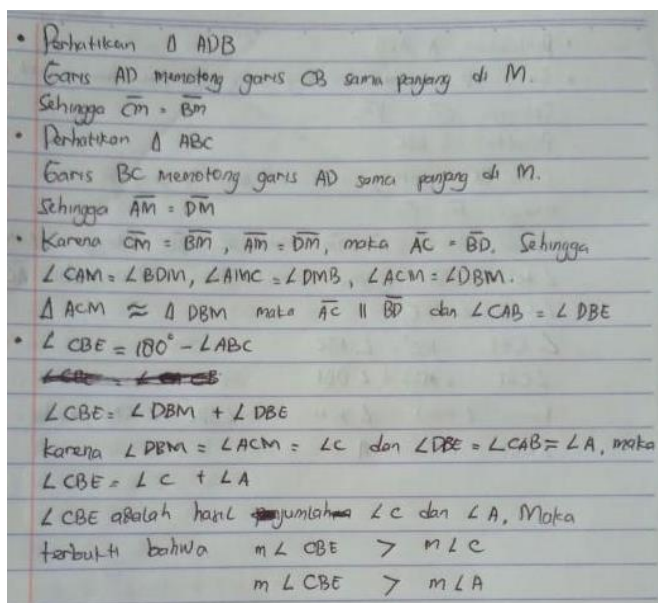 • Perhatikan Δ ADB
Garis AD memotong garis CB sama panjang di M.
Sehingga C̅M̅ = B̅M̅
• Perhatikan Δ ABC
Garis BC memotong garis AD sama panjang di M.
Sehingga A̅M̅ = D̅M̅
• Karena C̅M̅ = B̅M̅, A̅M̅ = D̅M̅, maka A̅C̅ = B̅D̅. Sehingga
∠ CAM = ∠ BDM, ∠ AMC = ∠ DMB, ∠ ACM = ∠ DBM.
Δ ACM ≈ Δ DBM maka A̅C̅ || B̅D̅ dan ∠ CAB = ∠ DBE
• ∠ CBE = 180° - ∠ ABC
∠ CBE = ∠ DBM + ∠ DBE
Karena ∠ DBM = ∠ ACM = ∠C dan ∠DBE = ∠CAB = ∠A, maka
∠ CBE = ∠ C + ∠ A
∠ CBE adalah hasil jumlah ∠ C dan ∠ A, Maka
terbukti bahwa m ∠ CBE > m ∠ C
m ∠ CBE > m ∠ A